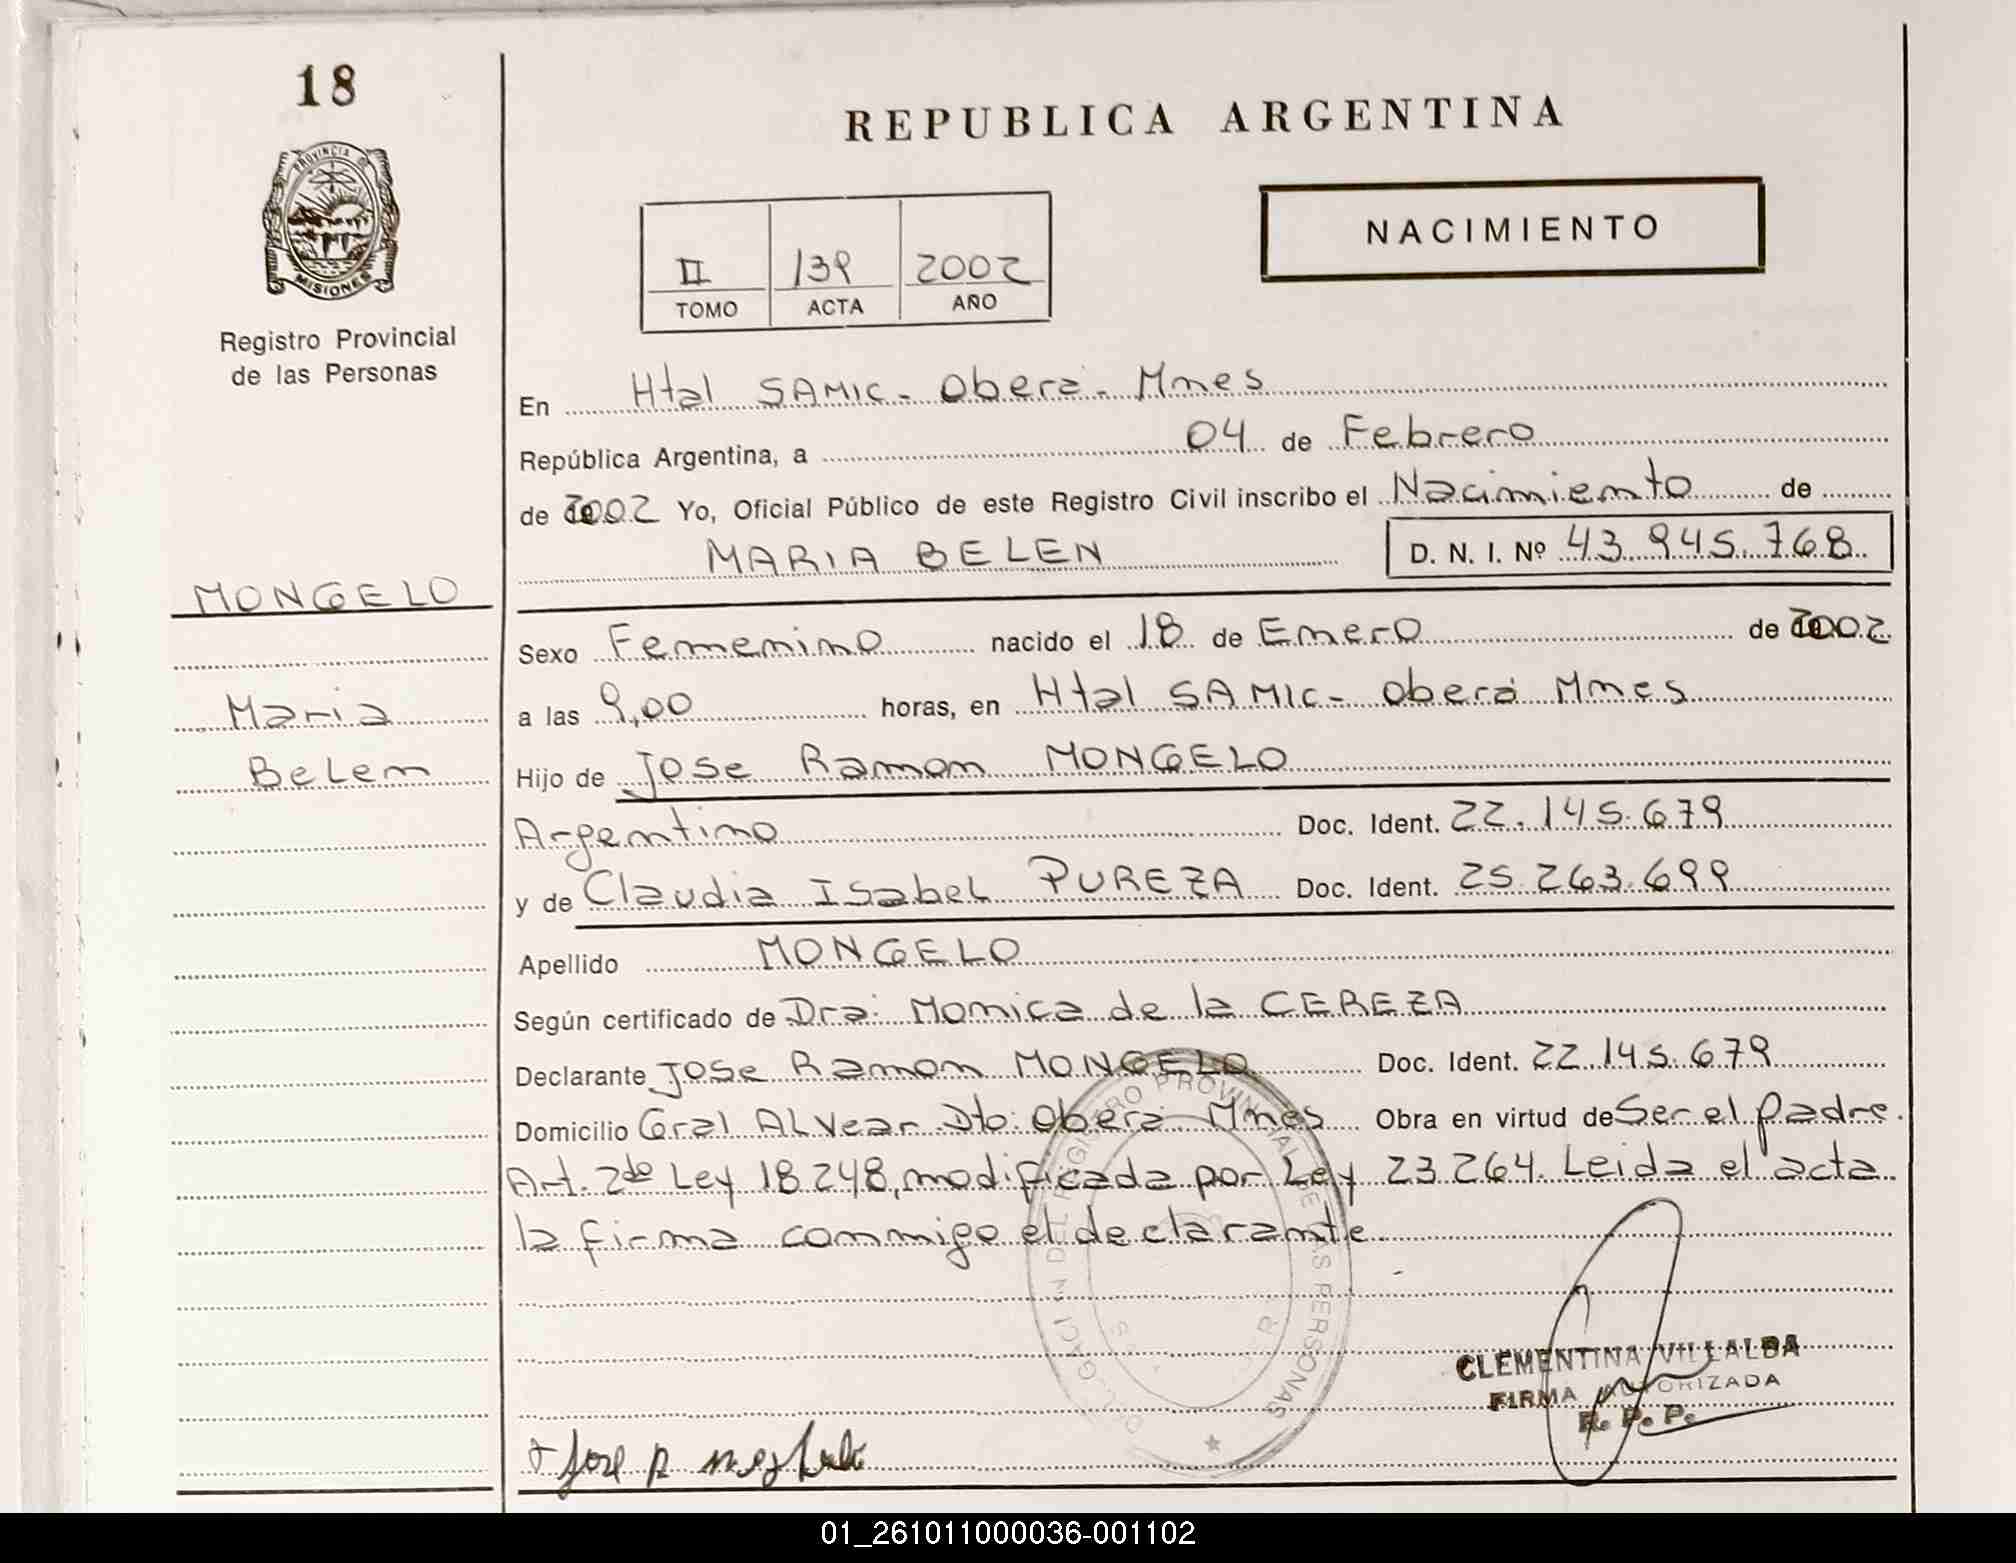 18
PROVINCIA D
MISIONES
Registro Provincial
de las Personas
REPUBLICA ARGENTINA
NACIMIENTO
II 139 2002
TOMO ACTA AÑO
En Htal SAMIC - Obera - Mnes
República Argentina, a 04 de Febrero
de 2002 Yo, Oficial Público de este Registro Civil inscribo el Nacimiento de
MARIA BELEN D. N. I. Nº 43.945.768
MONGELO
Maria
Belen
Sexo Femenino nacido el 18 de Enero de 2002
a las 9,00 horas, en Htal SAMIC - Obera Mnes
Hijo de Jose Ramon MONGELO
Argentino Doc. Ident. 22.145.679
y de Claudia Isabel PUREZA Doc. Ident. 25.263.699
Apellido MONGELO
Según certificado de Dra: Monica de la CEREZA
Declarante Jose Ramon MONGELO Doc. Ident. 22.145.679
Domicilio Gral Alvear Dto. Obera Mnes Obra en virtud de Ser el padre.
Art. 2do Ley 18248, modificada por Ley 23264. Leida el acta
la firma conmigo el declarante.
REGISTRO PROVINCIAL DE LAS PERSONAS
CLEMENTINA VILLALBA
FIRMA AUTORIZADA
R. P. P.
Jose R
01_261011000036-001102